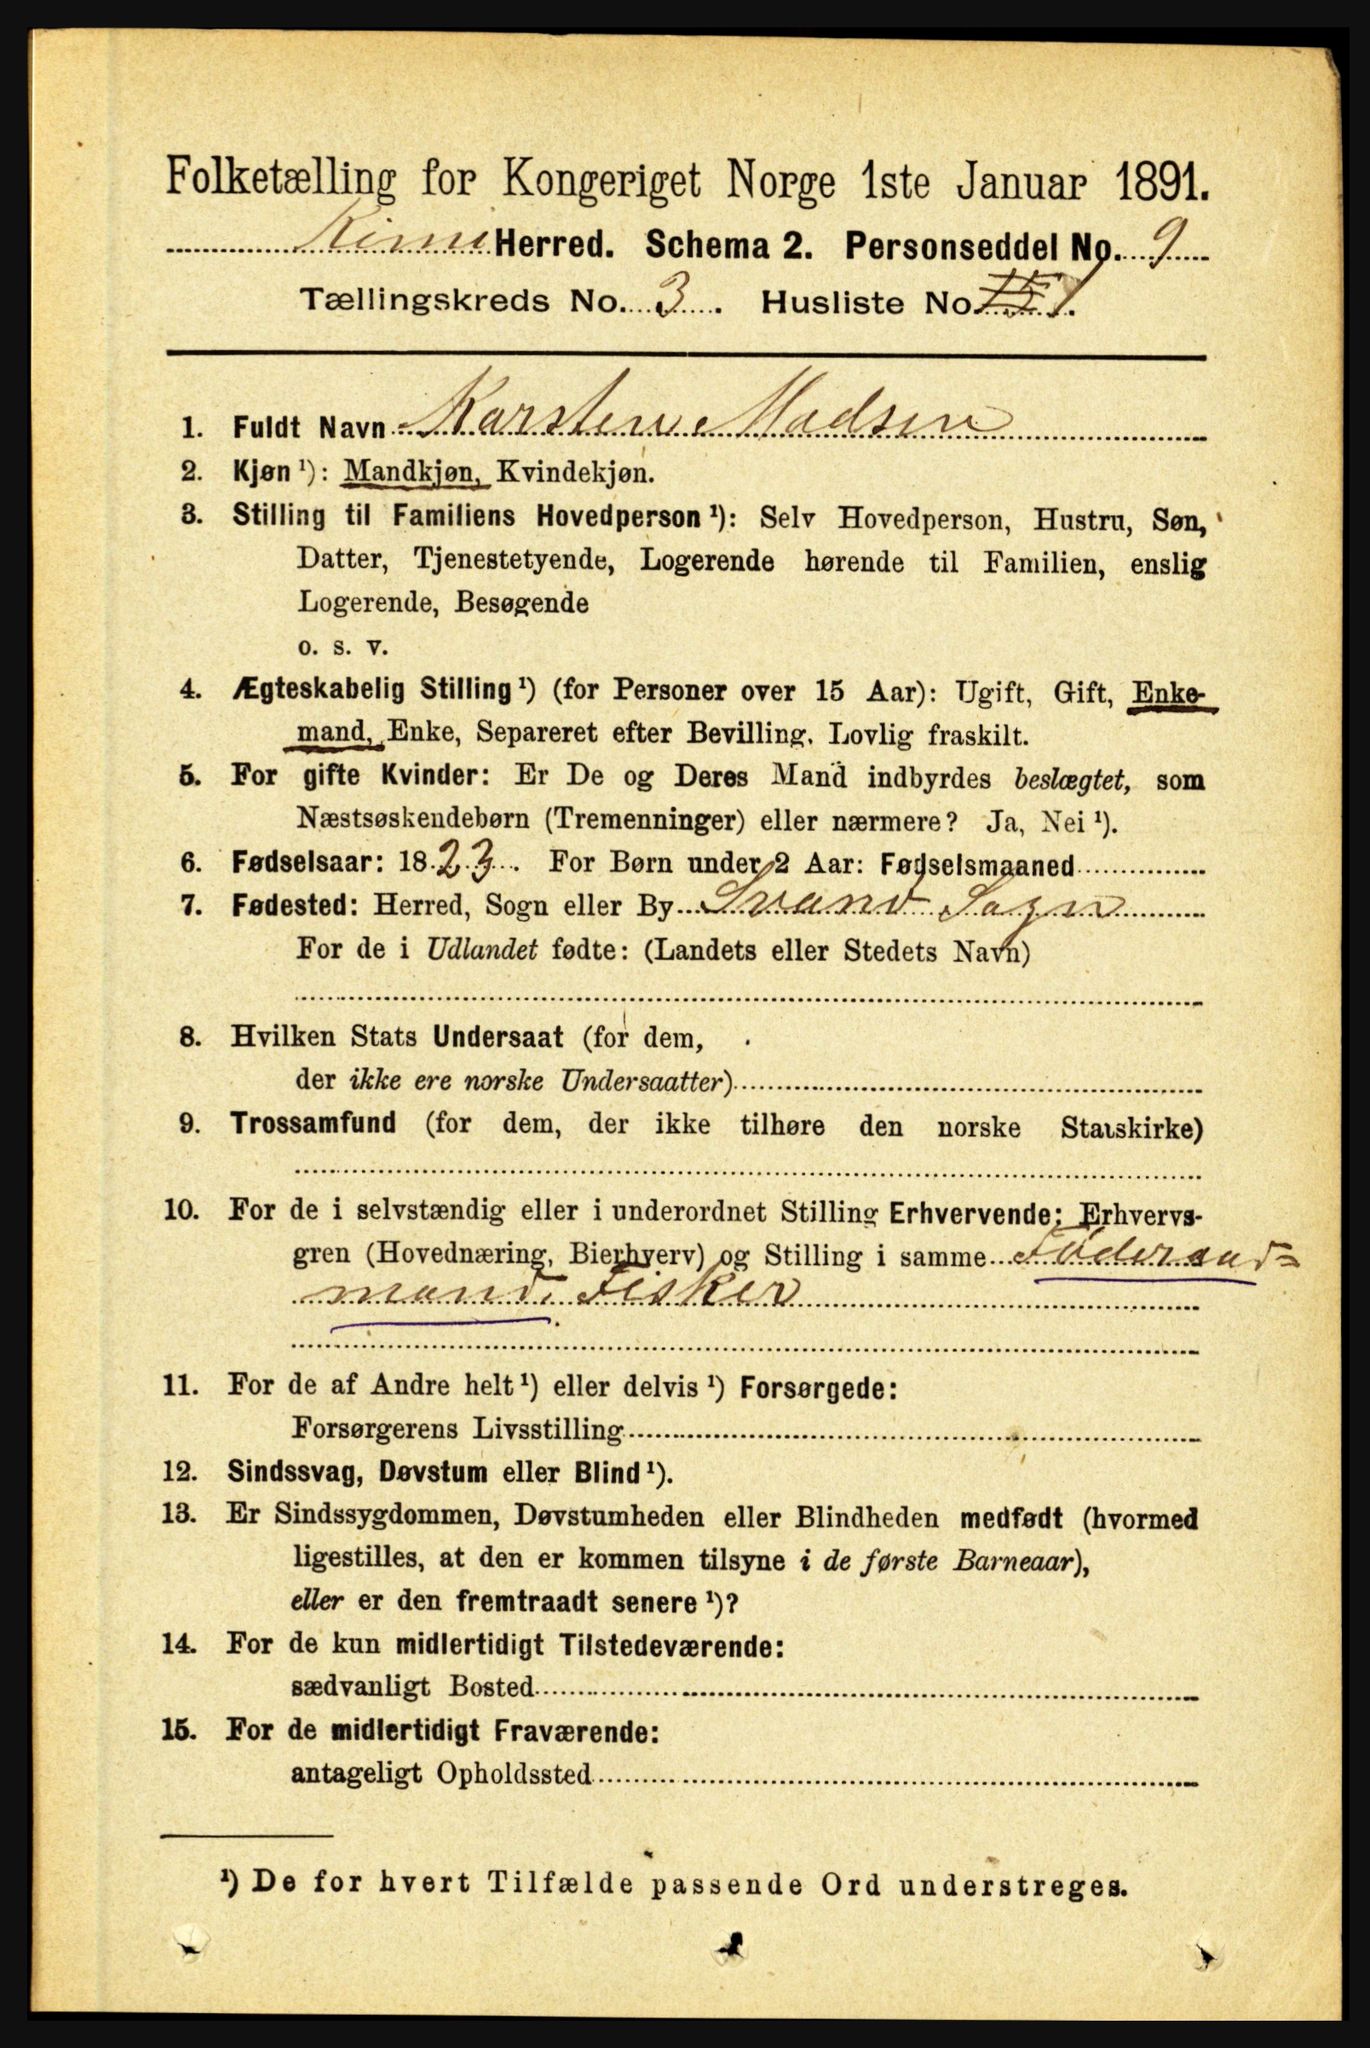 Folketælling for Kongeriget Norge 1ste Januar 1891.
Kinn Herred. Schema 2. Personseddel No. 9
Tællingskreds No. 3. Husliste No. 1.
1. Fuldt Navn Karsten Madsen
2. Kjøn ¹): Mandkjøn, Kvindekjøn.
3. Stilling til Familiens Hovedperson ¹): Selv Hovedperson, Hustru, Søn,
Datter, Tjenestetyende, Logerende hørende til Familien, enslig
Logerende, Besøgende
o. s. v.
4. Ægteskabelig Stilling ¹) (for Personer over 15 Aar): Ugift, Gift, Enke-
mand, Enke, Separeret efter Bevilling. Lovlig fraskilt.
5. For gifte Kvinder: Er De og Deres Mand indbyrdes beslægtet, som
Næstsøskendebørn (Tremenninger) eller nærmere? Ja, Nei ¹).
6. Fødselsaar: 1823. For Børn under 2 Aar: Fødselsmaaned
7. Fødested: Herred, Sogn eller By Svanø Sogn
For de i Udlandet fødte: (Landets eller Stedets Navn)
8. Hvilken Stats Undersaat (for dem,
der ikke ere norske Undersaatter)
9. Trossamfund (for dem, der ikke tilhøre den norske Statskirke)
10. For de i selvstændig eller i underordnet Stilling Erhvervende: Erhvervs-
gren (Hovednæring, Bierhverv) og Stilling i samme Föderaad=
mand. Fisker
11. For de af Andre helt ¹) eller delvis ¹) Forsørgede:
Forsørgerens Livsstilling
12. Sindssvag, Døvstum eller Blind ¹).
13. Er Sindssygdommen, Døvstumheden eller Blindheden medfødt (hvormed
ligestilles, at den er kommen tilsyne i de første Barneaar),
eller er den fremtraadt senere ¹)?
14. For de kun midlertidigt Tilstedeværende:
sædvanligt Bosted
15. For de midlertidigt Fraværende:
antageligt Opholdssted
¹) De for hvert Tilfælde passende Ord understreges.